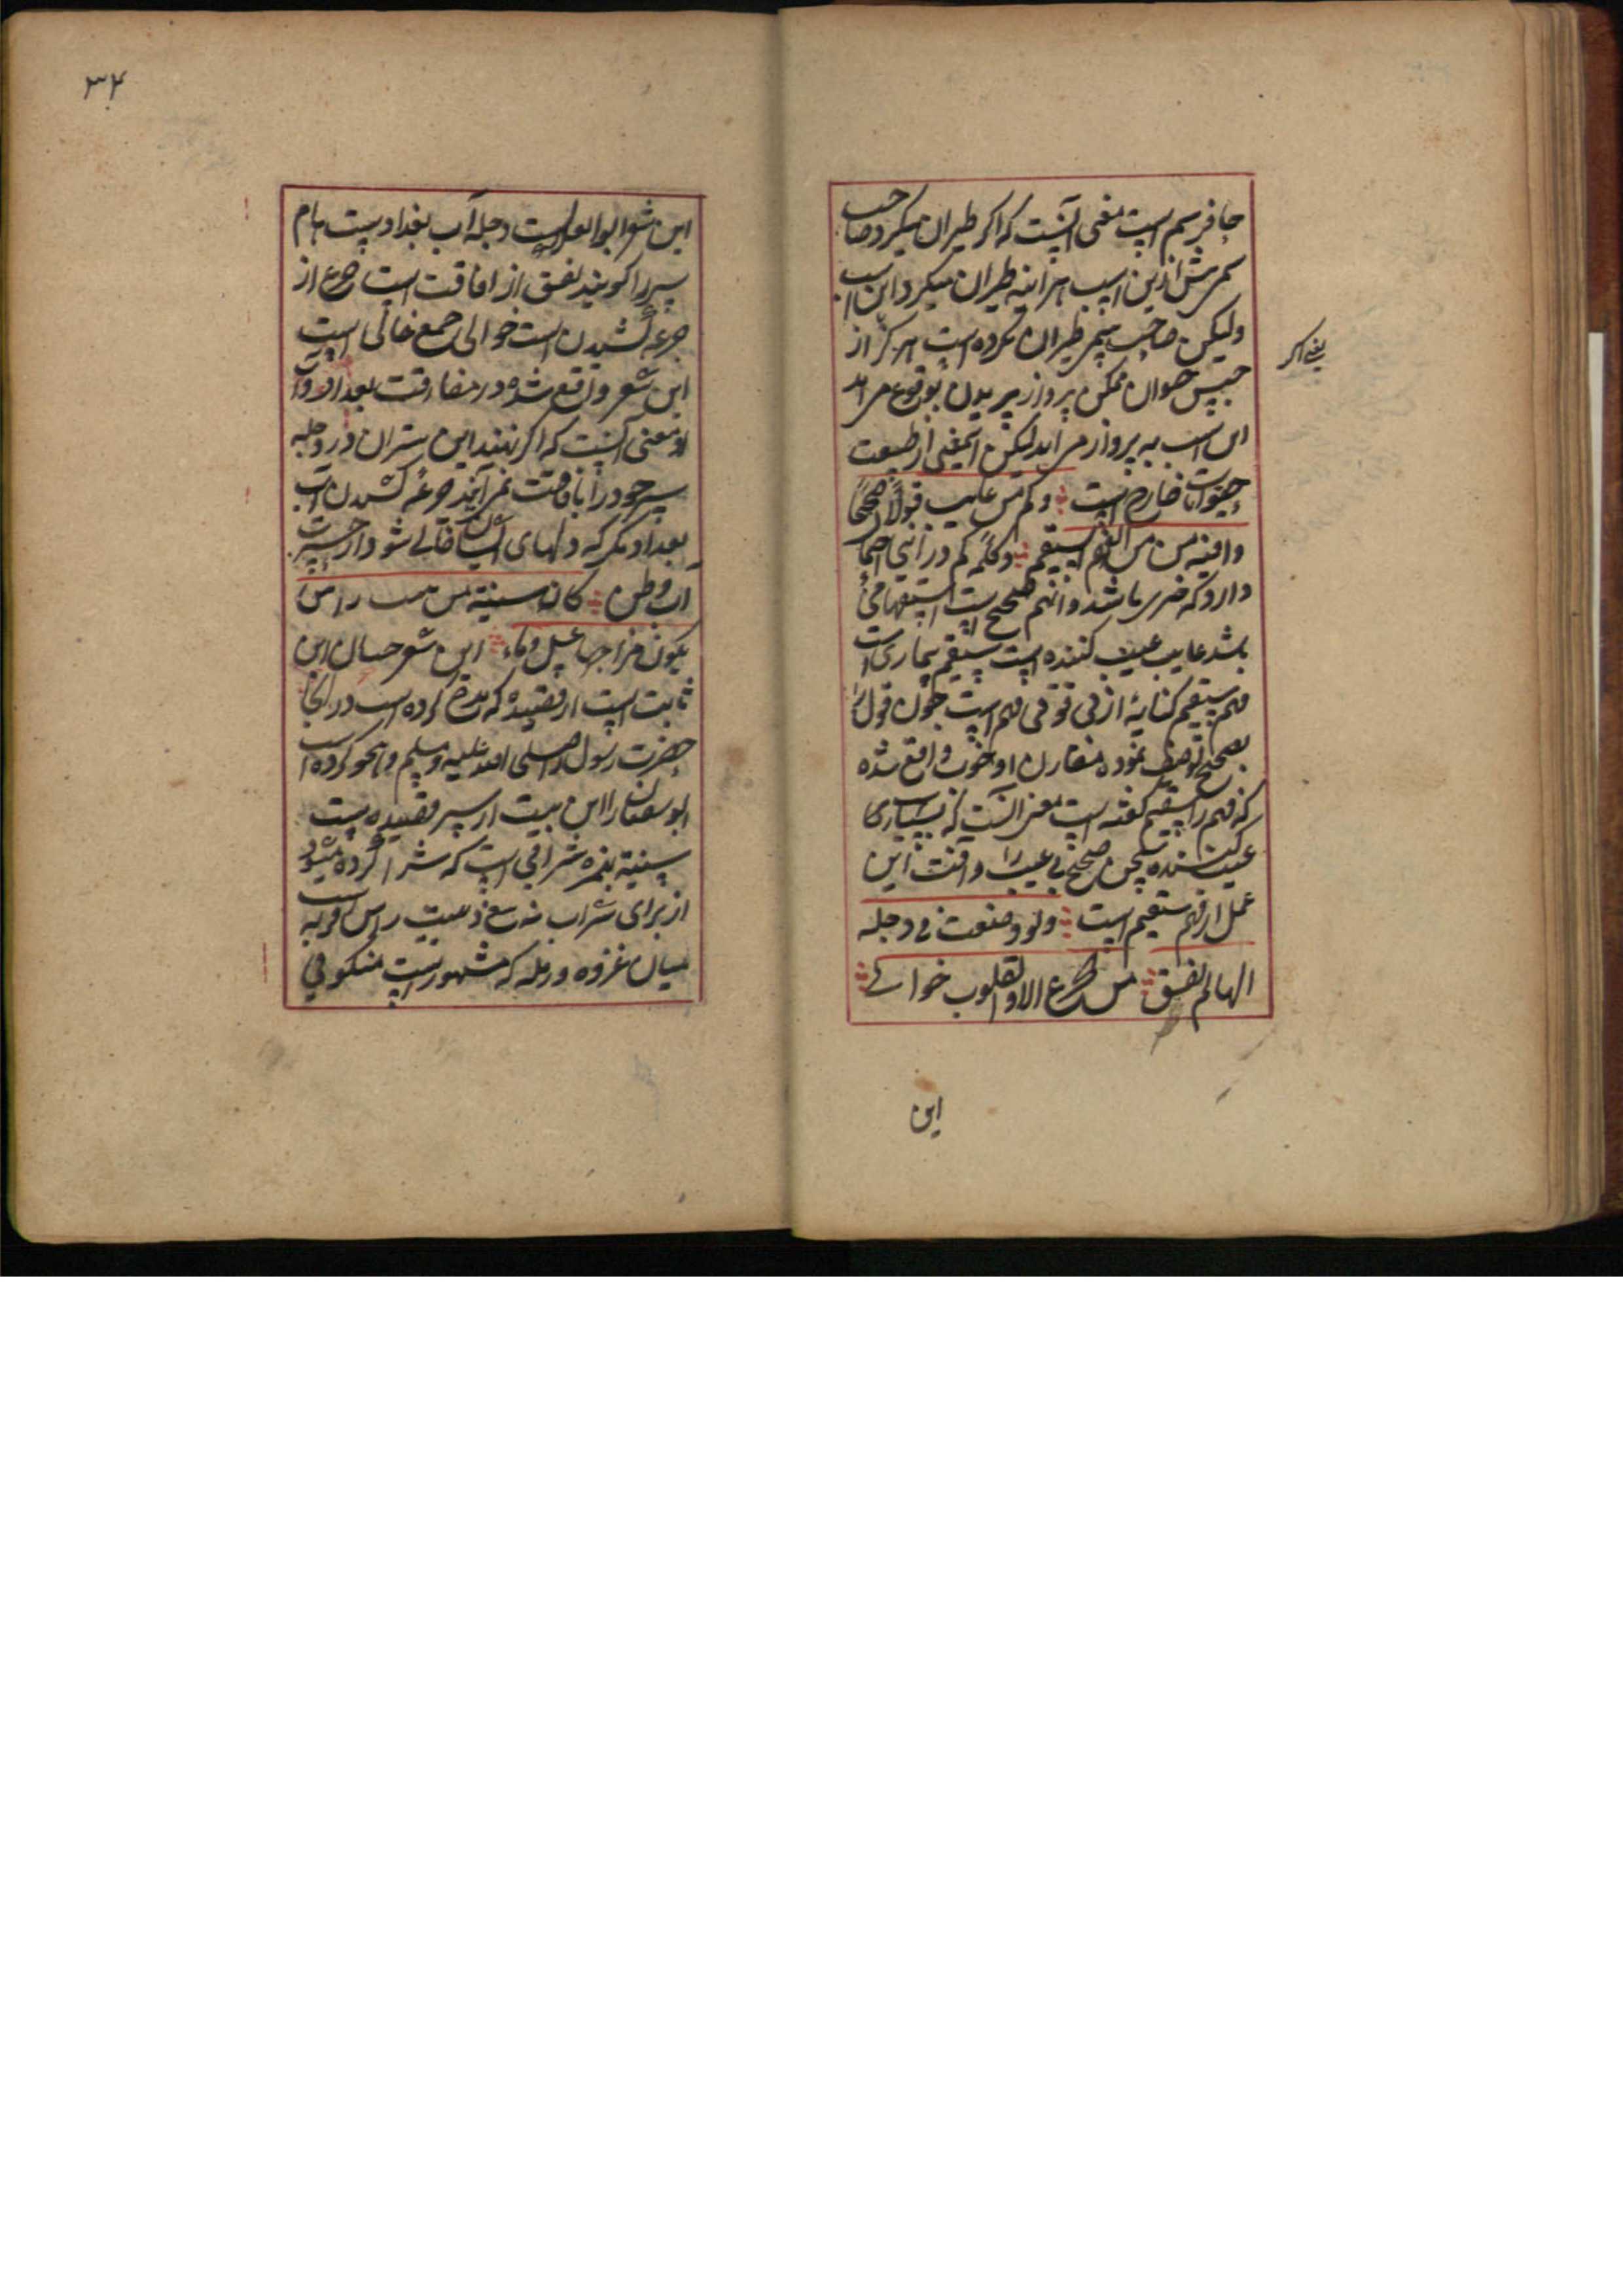 حافر سم است معنی آنست که اکر طیران میکرد صاحب
سمی پیش ازین اسب هر آینه طیران میکرد این اسب
ولیکن صاحب سمی طیران نکرده است هرکز از
یعنی اکر
جنس حیوان ممکن پرواز پریدن بوقوع می آمد
این اسب به پرواز می آید لیکن اینمعنی از طبیعت
حیوانات خارج است وکم من عایب قولا صحیحا
وافته من الفهم السقیم وکلمه کم در اینجا احتمال
دارد که خبری باشد و انهم صحیح است استفهامی
باشد عایب عیب کننده است سقیم بیماری است
فهم سقیم کنایه از بی ذوقی فهم است چون قول را
بصحیح توصیف نموده مقارن او خوب واقع شده
که فهم را سقیم کفته است معنی آنست که بسیاری
عیب کننده سخن صحیح بی عیب را و آفت این
عمل از فهم سقیم است ولو وضعت فی دجله
الهام لم تفق من الجرع الا والقلوب خوالے
این
۳۴
این شعر ابو العلاست دجله آب بغداد ست هام
سر را کویند تفق از افاقت است جرع از
جرعه کشیدن است خوالی جمع خالی است
این شعر واقع شده در مفارقت بغداد و آب
او معنی آنست که اکر نهند این شتران در دجله
سر خود را بافاقت نمی آیند جرعه کشیدن آب
بغداد مکر که دلهای ایشان خالی شود از حسرت
آب وطن کان سبیئة من بیت راس
یکون مزاجها عسل وماء این شعر حسان ابن
ثابت است از قصیده که مدح کرده است در آنجا
حضرت رسول را صلی الله علیه وسلم و هجو کرده است
ابو سفیان را این بیت از سر قصیده ست
سبیئة بهمزه شرابی است که شرا کرده میشود
از برای شراب نه بیع بیت راس قریه است
میان غزه و رمله که مشهور است منکوفی